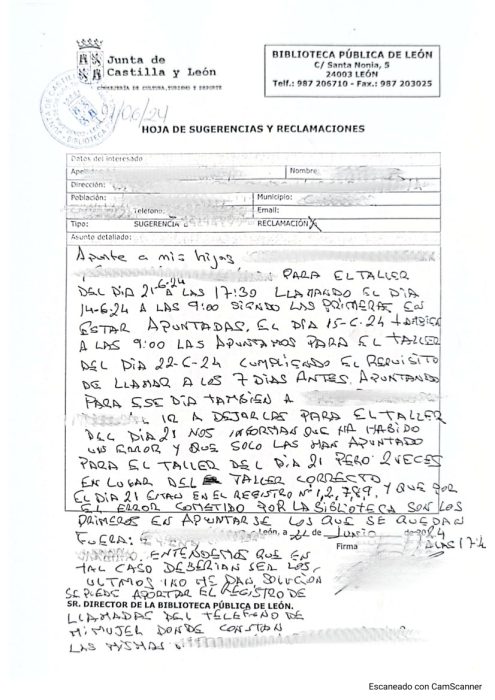 Junta de
Castilla y León
CONSEJERÍA DE CULTURA, TURISMO Y DEPORTE
BIBLIOTECA PÚBLICA DE LEÓN
C/ Santa Nonia, 5
24003 LEÓN
Telf.: 987 206710 - Fax.: 987 203025
21/06/24
HOJA DE SUGERENCIAS Y RECLAMACIONES
Datos del interesado
Nombre:
Dirección:
Población:
Municipio:
Teléfono:
Email:
Tipo:
SUGERENCIA
RECLAMACIÓN X
Asunto detallado:
Apunte a mis hijas
PARA EL TALLER
DEL DIA 21-6-24 A LAS 17:30 LLAMANDO EL DIA
14-6-24 A LAS 9:00 SIENDO LAS PRIMERAS EN
ESTAR APUNTADAS, EL DIA 15-6-24 TAMBIEN
A LAS 9:00 LAS APUNTAMOS PARA EL TALLER
DEL DIA 22-6-24 CUMPLIENDO EL REQUISITO
DE LLAMAR A LOS 7 DIAS ANTES, APUNTANDO
PARA ESE DIA TAMBIEN A
AL IR A DEJARLAS PARA EL TALLER
DEL DIA 21 NOS INFORMAN QUE HA HABIDO
UN ERROR Y QUE SOLO LAS HAN APUNTADO
PARA EL TALLER DEL DIA 21 PERO 2 VECES
EN LUGAR DEL TALLER CORRECTO
EL DIA 21 ESTAN EN EL REGISTRO Nº 1,2,7,8,9, Y QUE POR
EL ERROR COMETIDO POR LA BIBLIOTECA SON LOS
PRIMEROS EN APUNTARSE LOS QUE SE QUEDAN
FUERA:
León, a 21 de Junio de 2024
Firma
A LAS 17 h
ENTENDEMOS QUE EN
TAL CASO DEBERIAN SER LOS
ULTIMOS Y NO ME DAN SOLUCION
SE PUEDE APORTAR EL REGISTRO DE
SR. DIRECTOR DE LA BIBLIOTECA PÚBLICA DE LEÓN.
LLAMADAS DEL TELEFONO DE
MI MUJER DONDE CONSTAN
LAS MISMAS
Escaneado con CamScanner